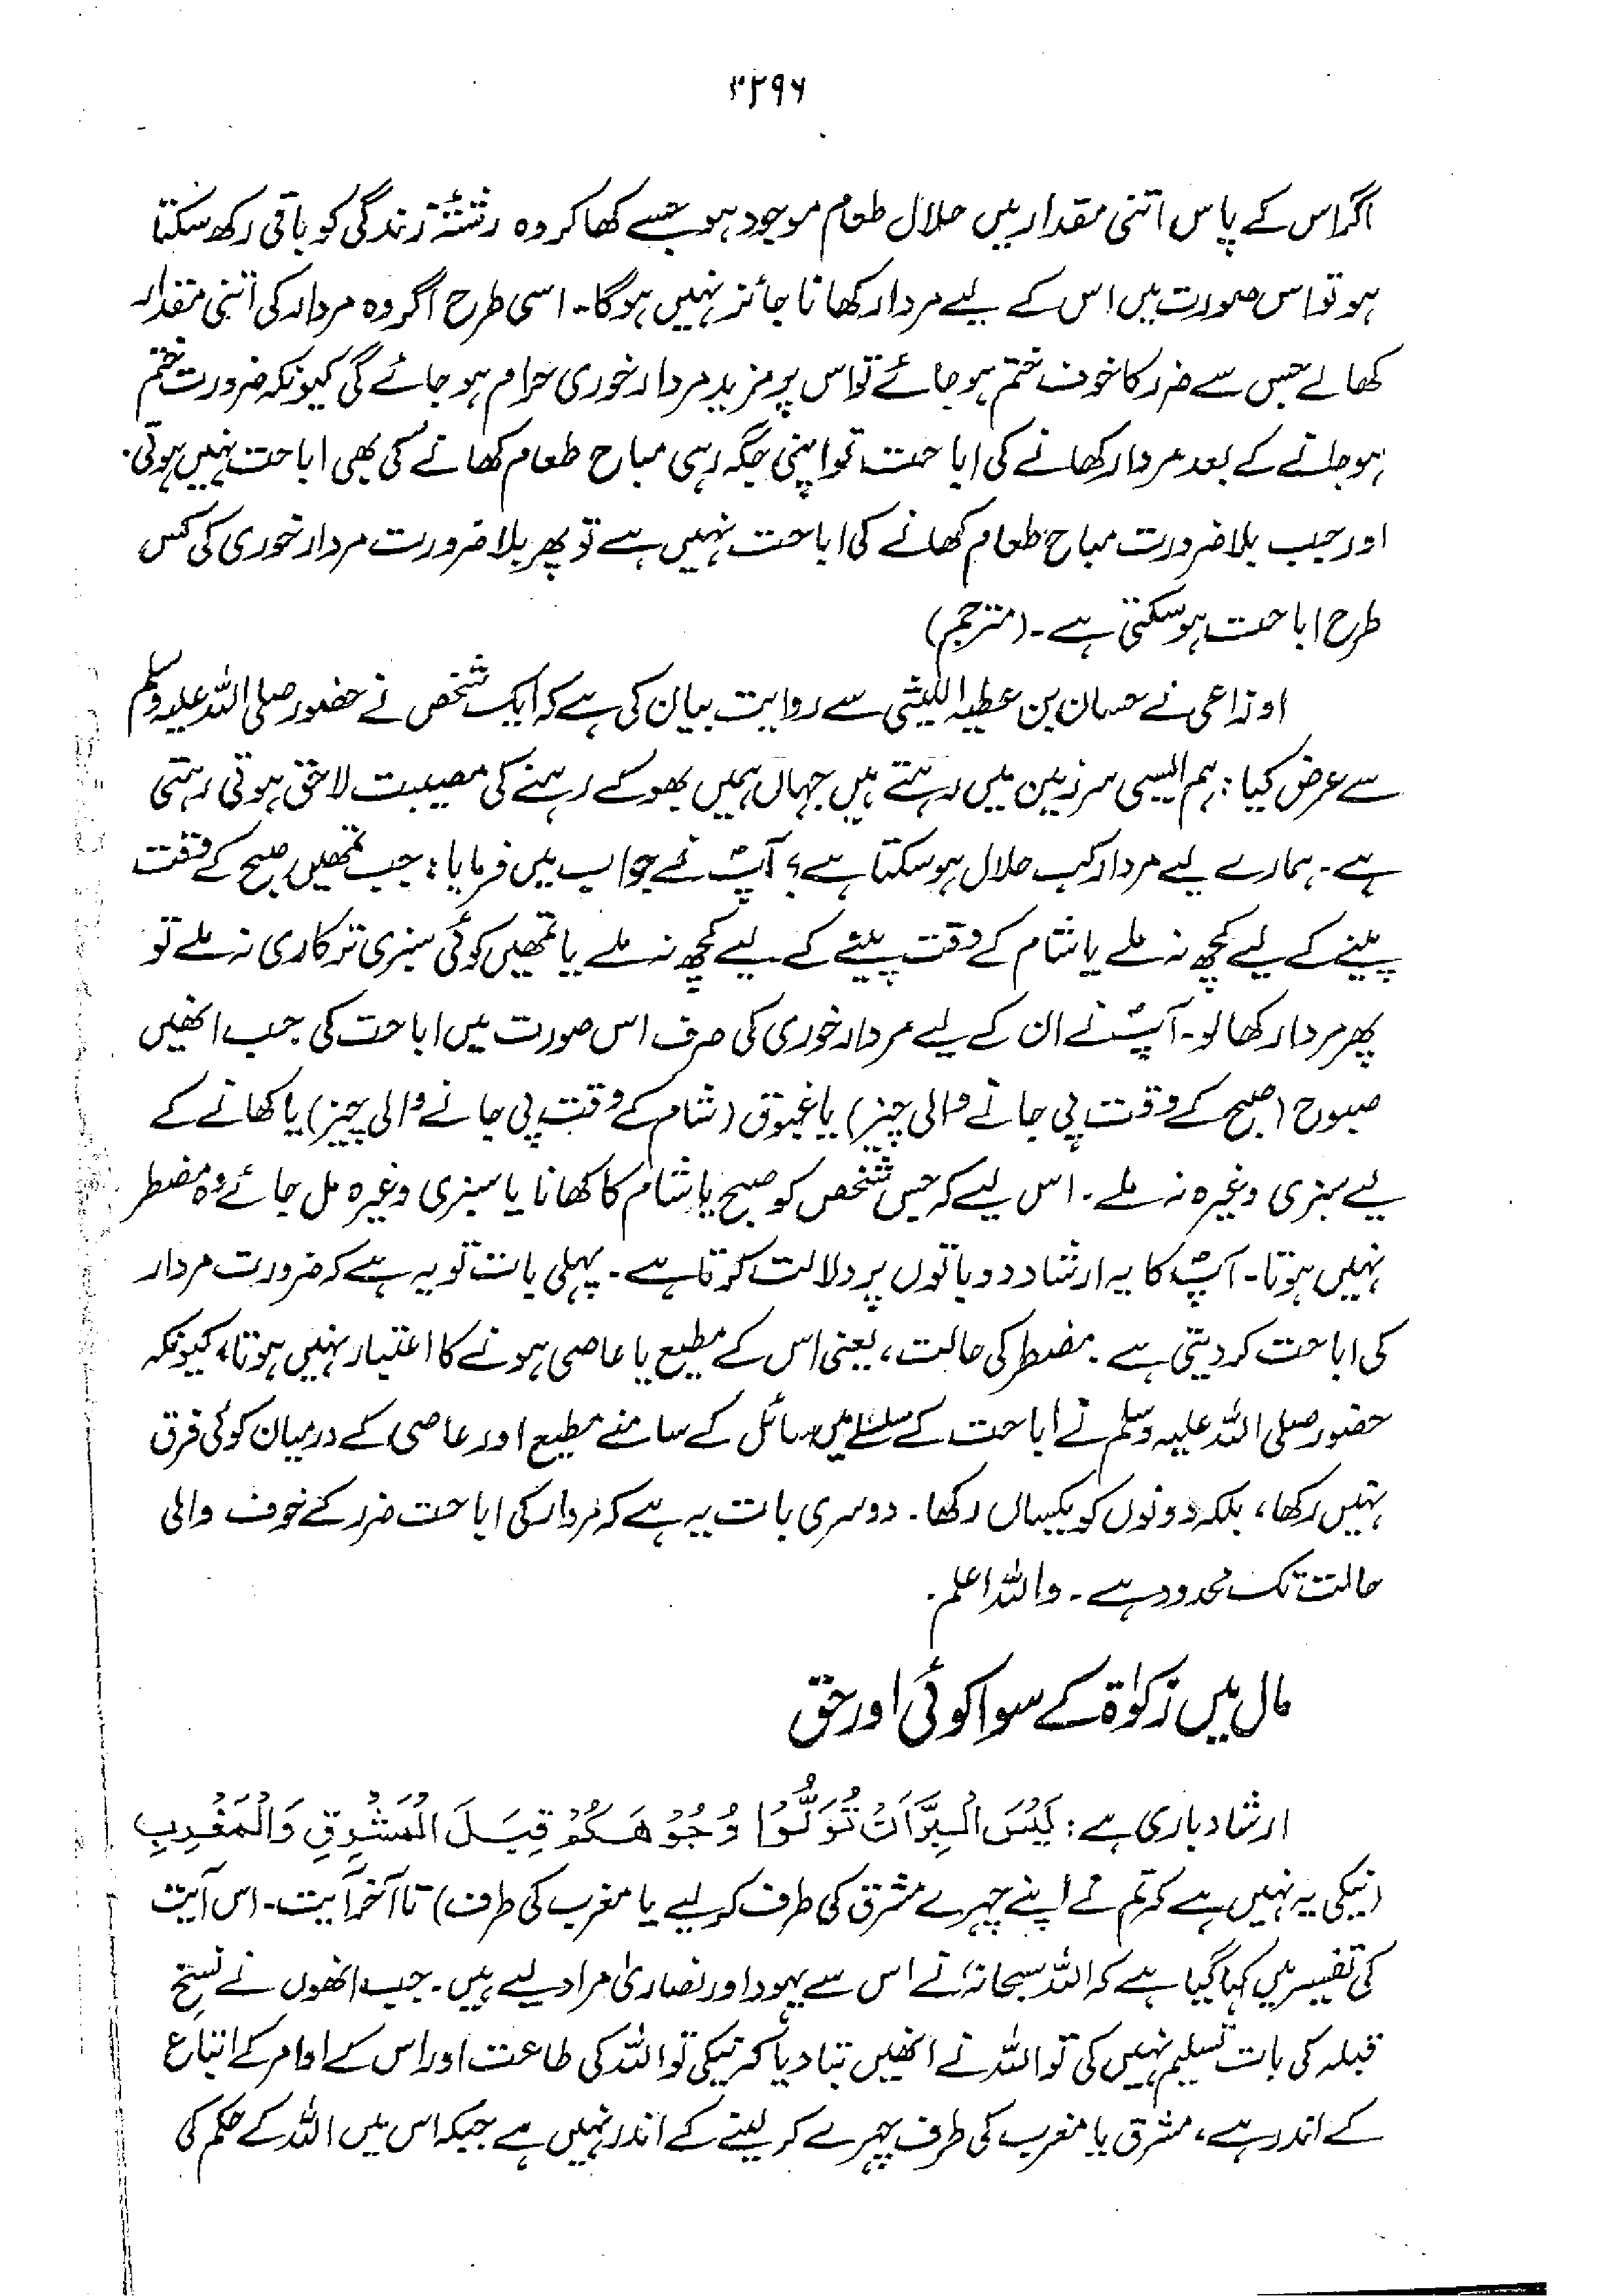 ۳۲۹۶
اگر اس کے پاس اتنی مقدار میں حلال طعام موجود ہو جسے کھا کر وہ رشتۂ زندگی کو باقی رکھ سکتا
ہو تو اس صورت میں اس کے لیے مردار کھانا جائز نہیں ہوگا۔ اسی طرح اگر وہ مردار کی اتنی مقدار
کھالے جس سے ضرر کا خوف ختم ہو جائے تو اس پر مزید مردار خوری حرام ہو جائے گی کیونکہ ضرورت ختم
ہو جانے کے بعد مردار کھانے کی اباحت تو اپنی جگہ رہی مباح طعام کھانے کی بھی اباحت نہیں ہوتی.
اور جب بلا ضرورت مباح طعام کھانے کی اباحت نہیں ہے تو پھر بلا ضرورت مردار خوری کی کس
طرح اباحت ہوسکتی ہے۔ (مترجم)
اوزاعی نے حسان بن عطیہ اللیثی سے روایت بیان کی ہے کہ ایک شخص نے حضور صلی اللہ علیہ وسلم
سے عرض کیا: ہم ایسی سرزمین میں رہتے ہیں جہاں ہمیں بھوکے رہنے کی مصیبت لاحق ہوتی رہتی
ہے۔ ہمارے لیے مردار کب حلال ہو سکتا ہے؟ آپؐ نے جواب میں فرمایا: جب تمھیں صبح کے وقت
پینے کے لیے کچھ نہ ملے یا شام کے وقت پینے کے لیے کچھ نہ ملے یا تمھیں کوئی سبزی ترکاری نہ ملے تو
پھر مردار کھا لو۔ آپؐ نے ان کے لیے مردار خوری کی صرف اس صورت میں اباحت کی جب انھیں
صبوح (صبح کے وقت پی جانے والی چیز) یا غبوق (شام کے وقت پی جانے والی چیز) یا کھانے کے
لیے سبزی وغیرہ نہ ملے۔ اس لیے کہ جس شخص کو صبح یا شام کا کھانا یا سبزی وغیرہ مل جائے وہ مضطر
نہیں ہوتا۔ آپؐ کا یہ ارشاد دو باتوں پر دلالت کرتا ہے۔ پہلی بات تو یہ ہے کہ ضرورت مردار
کی اباحت کر دیتی ہے۔ مضطر کی حالت، یعنی اس کے مطیع یا عاصی ہونے کا اعتبار نہیں ہوتا، کیونکہ
حضور صلی اللہ علیہ وسلم نے اباحت کے سلسلے میں سائل کے سامنے مطیع اور عاصی کے درمیان کوئی فرق
نہیں رکھا، بلکہ دونوں کو یکساں رکھا۔ دوسری بات یہ ہے کہ مردار کی اباحت ضرر کے خوف والی
حالت تک محدود ہے۔ واللہ اعلم.
مال میں زکوٰۃ کے سوا کوئی اور حق
ارشاد باری ہے: لَيْسَ الْبِرَّ اَنْ تُوَلُّوْا وُجُوْهَكُمْ قِبَلَ الْمَشْرِقِ وَالْمَغْرِبِ
(نیکی یہ نہیں ہے کہ تم نے اپنے چہرے مشرق کی طرف کر لیے یا مغرب کی طرف) تا آخر آیت۔ اس آیت
کی تفسیر میں کہا گیا ہے کہ اللہ سبحانہٗ نے اس سے یہود اور نصاریٰ مراد لیے ہیں۔ جب انھوں نے نسخِ
قبلہ کی بات تسلیم نہیں کی تو اللہ نے انھیں بتا دیا کہ نیکی تو اللہ کی طاعت اور اس کے اوامر کے اتباع
کے اندر ہے، مشرق یا مغرب کی طرف چہرے کر لینے کے اندر نہیں ہے جبکہ اس میں اللہ کے حکم کی